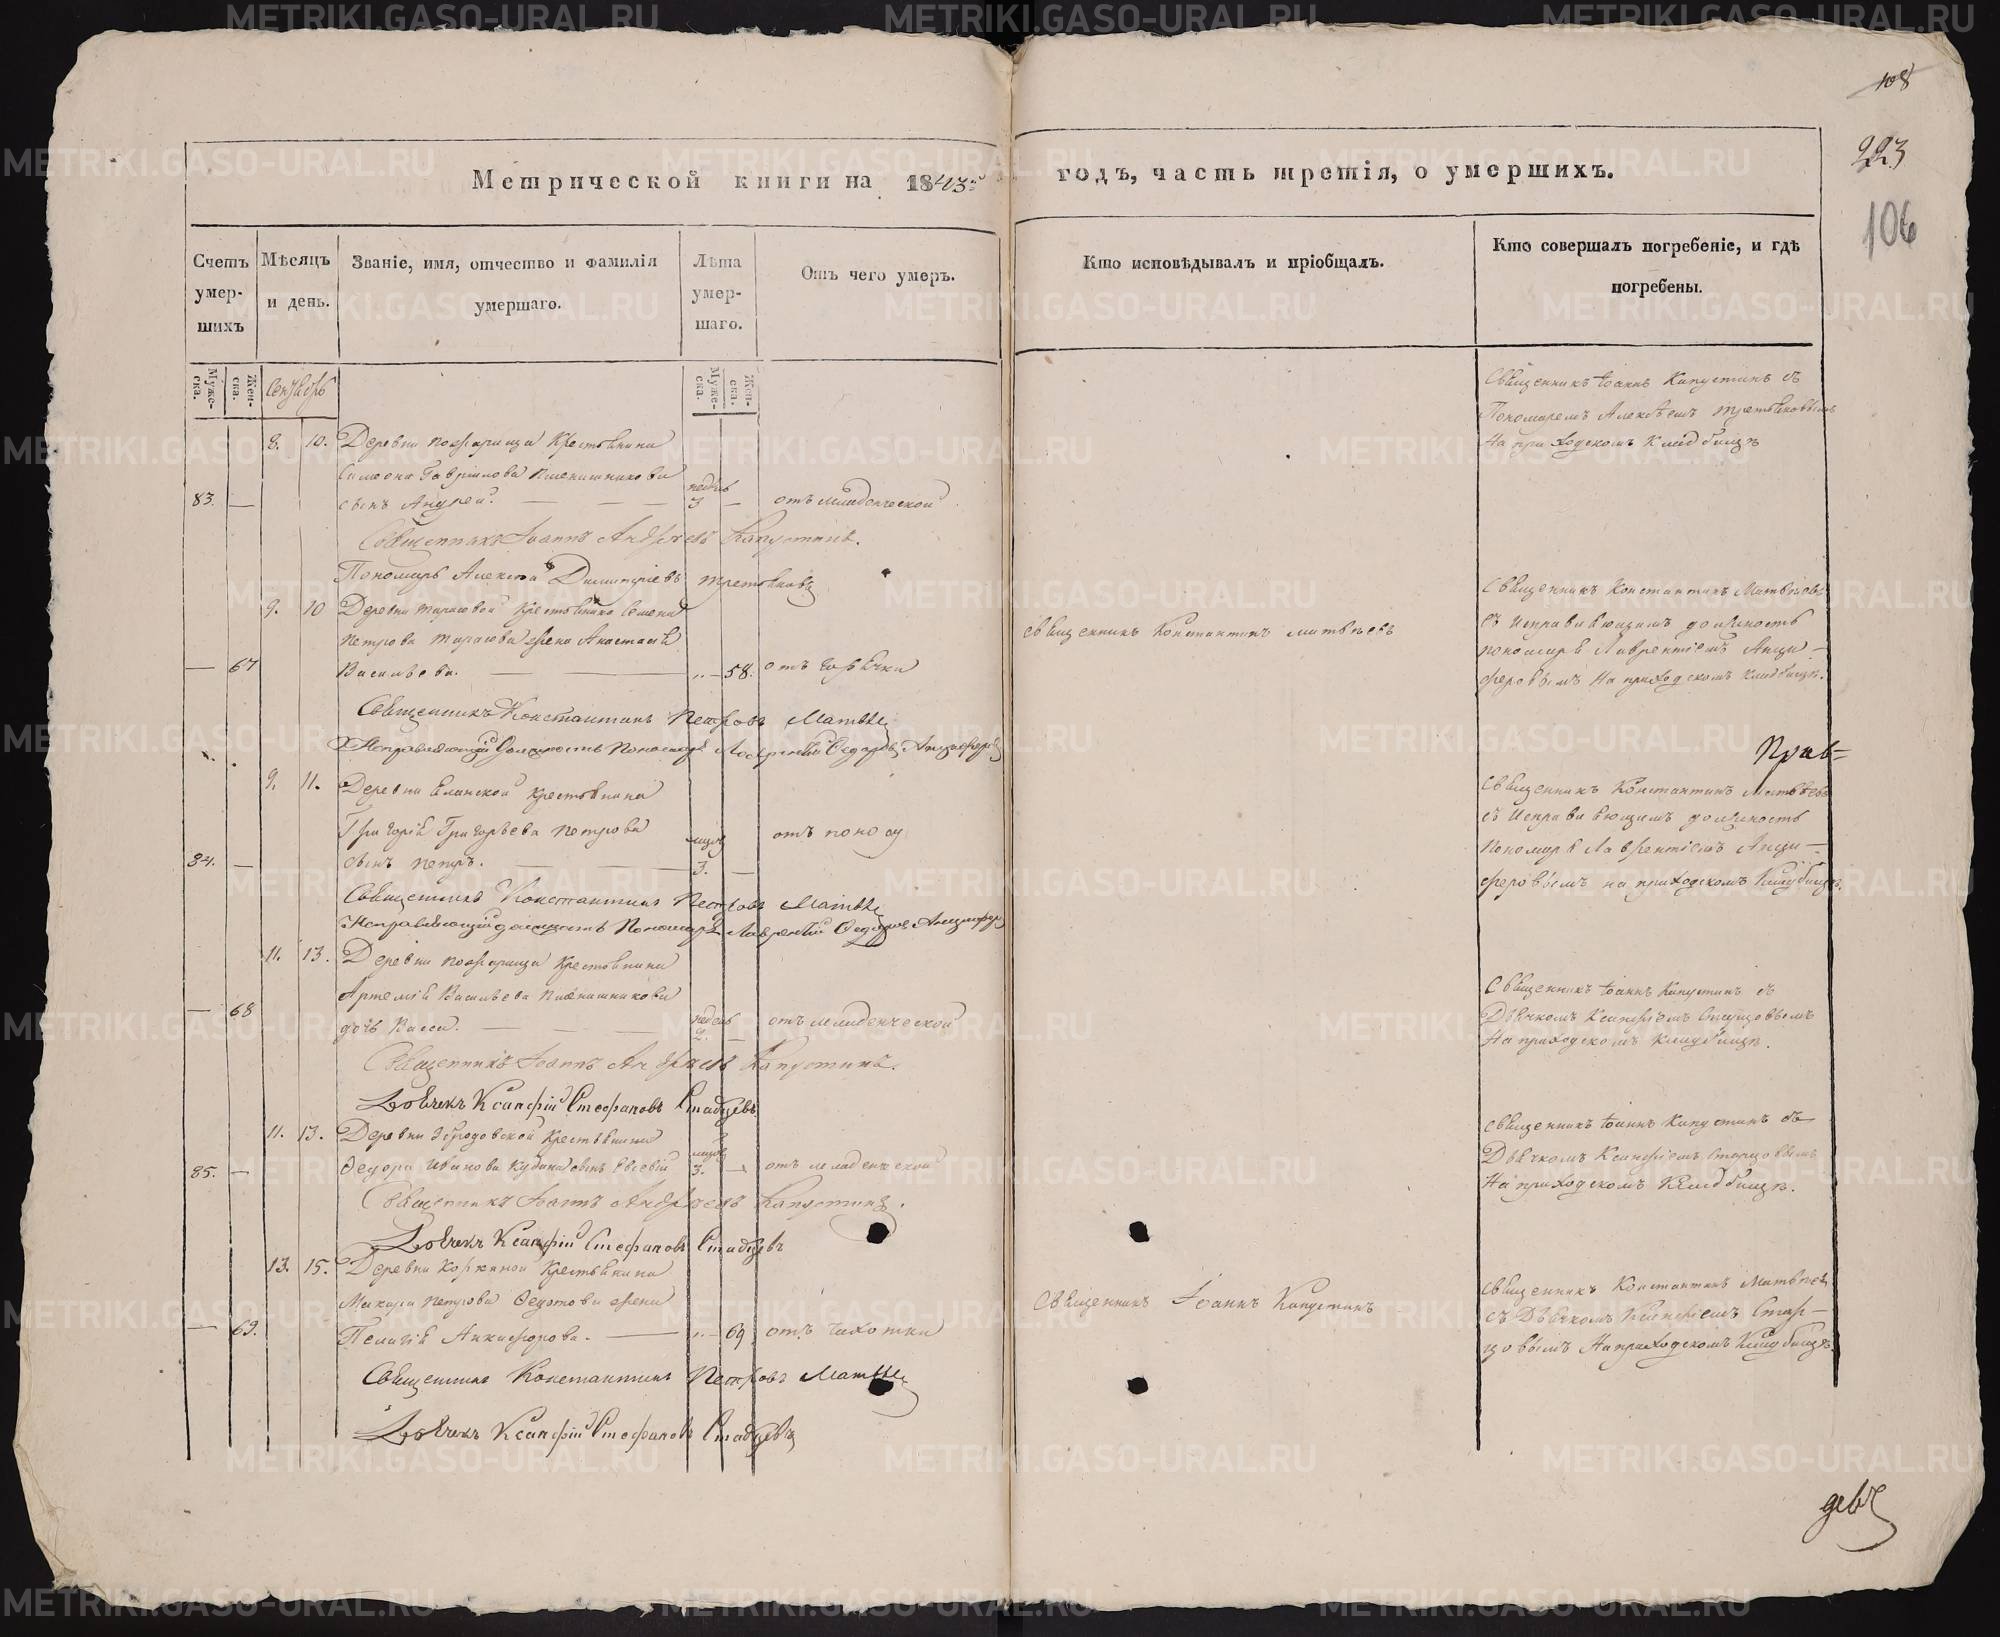 108
223
106
Метрической книги на 1843й годъ, часть третія, о умершихъ.
Счетъ умер- шихъ
Мѣсяцъ и день.
Званіе, имя, отчество и фамилія умершаго.
Лѣта умер- шаго.
Отъ чего умеръ.
Кто исповѣдывалъ и пріобщалъ.
Кто совершалъ погребеніе, и гдѣ погребены.
Муже- ска.
Жен- ска.
Сентябрь
Муже- ска.
Жен- ска.
Священникъ Іоаннъ Капустинъ съ
Пономаремъ Алексѣемъ Третьяковымъ
на приходскомъ кладбищѣ
8. 10. Деревни крестьянина
Симеона Гаврилова Пшенишникова
83. — сынъ Андрей. — — — недѣль 3 — отъ младенческой
Священникъ Іоаннъ Андреевъ Капустинъ.
Пономарь Алексѣй Димитріевъ Третьяковъ
9. 10 Деревни Тарасовой крестьянина Семена
Петрова Тарасова жена Анастасія
— 67 Васильева. — — „ — 58. отъ горячки
Священникъ Константинъ Матвѣевъ
Священникъ Константинъ Матвѣевъ
съ исправляющимъ должность
пономаря Лаврентіемъ Анци-
феровымъ на приходскомъ кладбищѣ.
Священникъ Константинъ Петровъ Матвѣевъ
Исправляющій должность Пономаря Лаврентій Ѳедоровъ Анциферовъ
Прав=
9. 11. Деревни Еланской крестьянина
Григорія Григорьева Петрова
84. — сынъ Петръ. — — 3. — отъ поносу
Священникъ Константинъ Матвѣевъ
съ исправляющимъ должность
пономаря Лаврентіемъ Анци-
феровымъ на приходскомъ кладбищѣ.
Священникъ Константинъ Петровъ Матвѣевъ
Исправляющій должность Пономаря Лаврентій Ѳедоровъ Анциферовъ
11. 13. Деревни крестьянина
Артемія Васильева Пшенишникова
— 68 дочь Васса. — — — недѣль 2. отъ младенческой
Священникъ Іоаннъ Капустинъ съ
Дьячкомъ Ксанфіемъ Старцовымъ
на приходскомъ кладбищѣ.
Священникъ Іоаннъ Андреевъ Капустинъ.
Дьячекъ Ксанфій Стефановъ Старцевъ
11. 13. Деревни крестьянина
85. — Ѳедора Иванова сынъ Евсевій 3. — отъ младенческой
Священникъ Іоаннъ Капустинъ съ
Дьячкомъ Ксанфіемъ Старцовымъ
на приходскомъ кладбищѣ.
Священникъ Іоаннъ Андреевъ Капустинъ.
Дьячекъ Ксанфій Стефановъ Старцевъ
13. 15. Деревни Коркиной крестьянина
Макара Петрова Ѳедотова жена
— 69. Пелагія Анкифорова. — „ — 69 отъ чахотки
Священникъ Іоаннъ Капустинъ
Священникъ Константинъ Матвѣевъ
съ Дьячкомъ Ксанфіемъ Стар-
цовымъ на приходскомъ кладбищѣ.
Священникъ Константинъ Петровъ Матвѣевъ
Дьячекъ Ксанфій Стефановъ Старцевъ
METRIKI.GASO-URAL.RU